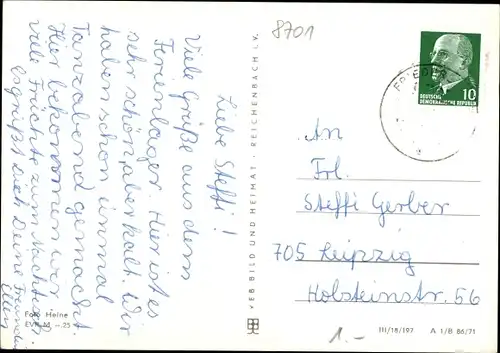 8701
Liebe Steffi!
Viele Grüße aus dem
Ferienlager. Hier ist es
sehr schön, aber kalt. Wir
haben schon einmal
Tanzabend gemacht.
Hier bekommen wir
viele Früchte zum Nachtisch.
Es grüßt Dich Deine Freundin
Ellen
Foto Heine
EVP M –.25
VEB BILD UND HEIMAT · REICHENBACH I. V.
FRIEDER
10
DEUTSCHE
DEMOKRATISCHE REPUBLIK
An
Frl.
Steffi Gerber
705 Leipzig
Holsteinstr. 56
1.-
III/18/197 A 1/B 86/71